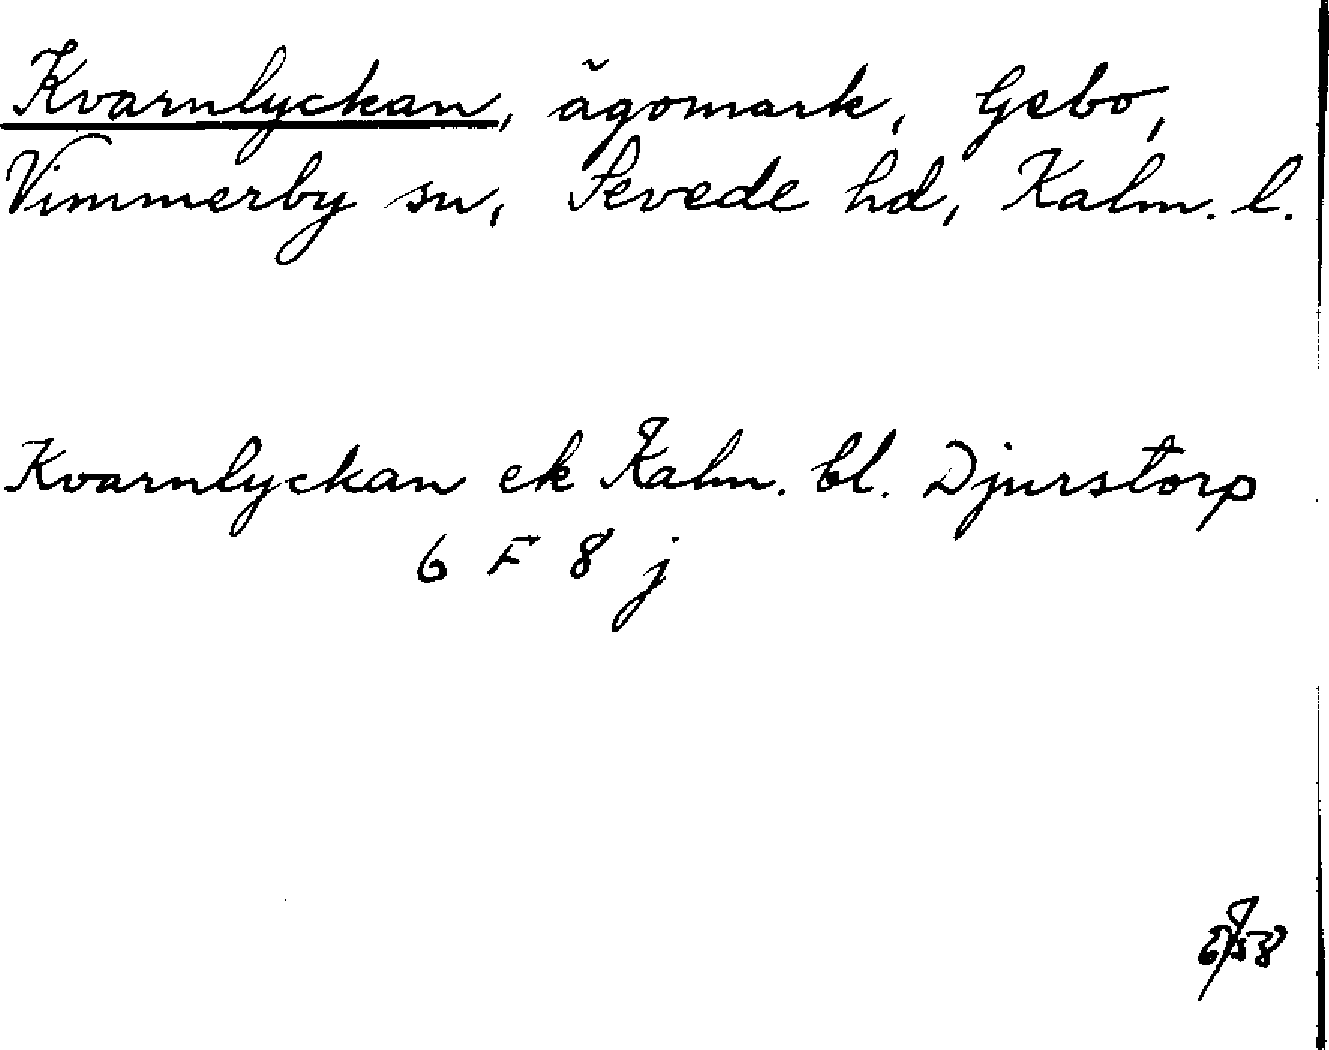 Kvarnlyckan, ägomark, Gebo,
Vimmerby sn, Sevede hd, Kalm. l.
Kvarnlyckan ek Kalm. bl. Djurstorp
6 F 8 j